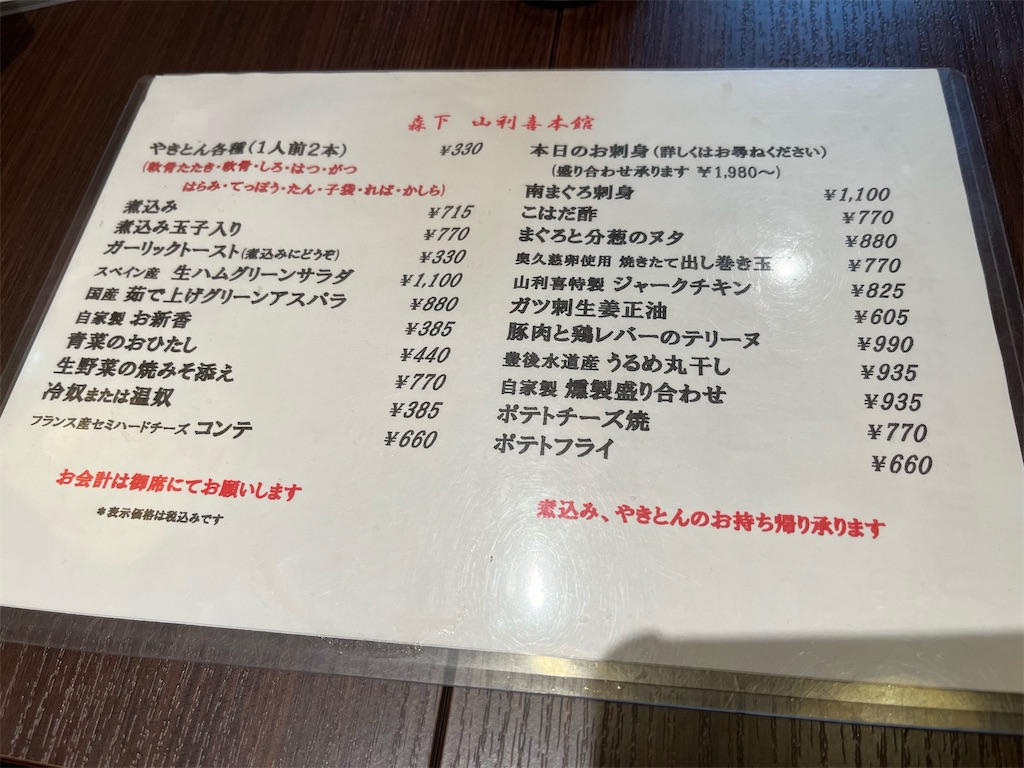 森下 山利喜本館
やきとん各種(1人前2本) ¥330
(軟骨たたき・軟骨・しろ・はつ・がつ
はらみ・てっぽう・たん・子袋・れば・かしら)
煮込み ¥715
煮込み玉子入り ¥770
ガーリックトースト(煮込みにどうぞ) ¥330
スペイン産 生ハムグリーンサラダ ¥1,100
国産 茹で上げグリーンアスパラ ¥880
自家製 お新香 ¥385
青菜のおひたし ¥440
生野菜の焼みそ添え ¥770
冷奴または温奴 ¥385
フランス産セミハードチーズ コンテ ¥660
お会計は御席にてお願いします
*表示価格は税込みです
本日のお刺身(詳しくはお尋ねください)
(盛り合わせ承ります ¥1,980~)
南まぐろ刺身 ¥1,100
こはだ酢 ¥770
まぐろと分葱のヌタ ¥880
奥久慈卵使用 焼きたて出し巻き玉 ¥770
山利喜特製 ジャークチキン ¥825
ガツ刺生姜正油 ¥605
豚肉と鶏レバーのテリーヌ ¥990
豊後水道産 うるめ丸干し ¥935
自家製 燻製盛り合わせ ¥935
ポテトチーズ焼 ¥770
ポテトフライ ¥660
煮込み、やきとんのお持ち帰り承ります